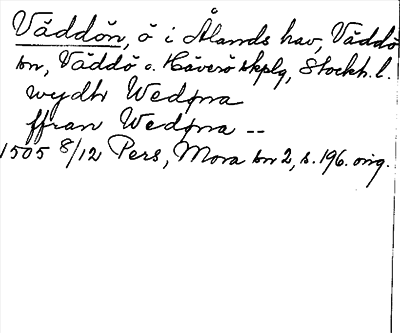 Väddön, ö i Ålands hav, Väddö
sn, Väddö o. Häverö skplg, Stockh. l.
wydh Wedøna
ffran Wedøna --
1505 8/12 Pers, Mora sn 2, s. 196. orig.